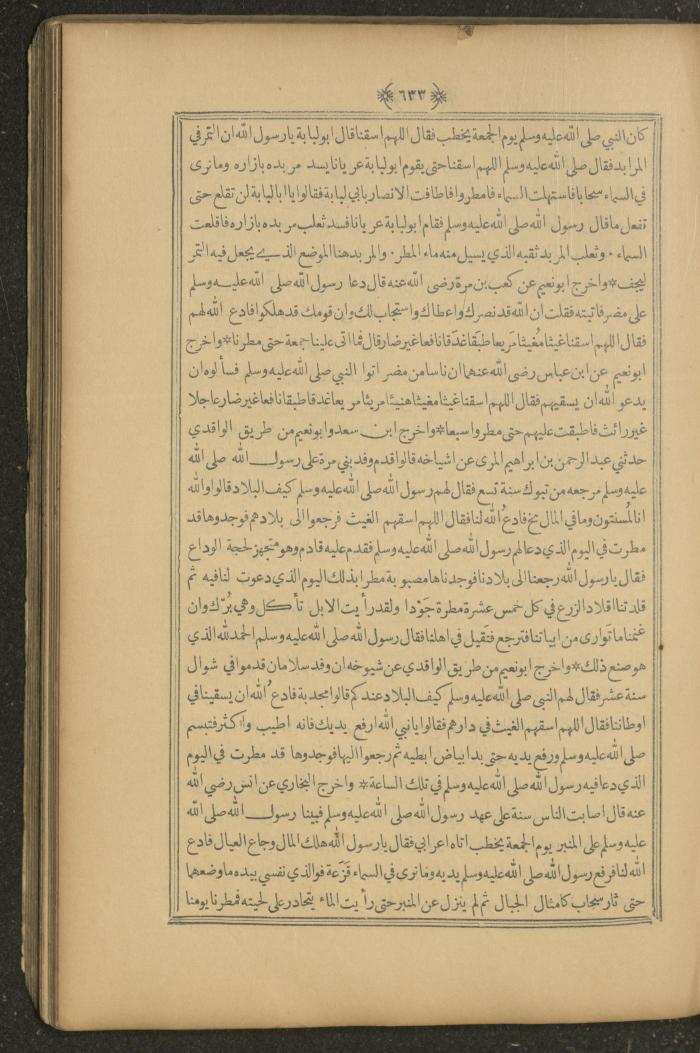 ﴿ ٦٣٣ ﴾
كان النبي صلى الله عليه وسلم يوم الجمعة يخطب فقال اللهم اسقنا قال ابولبابة يارسول الله ان التمر في
المرابد فقال صلى الله عليه وسلم اللهم اسقنا حتى يقوم ابولبابة عريانا يسد مربده بازاره ومانرى
في السماء سحابا فاستهلت السماء فامطروا فاطافت الانصار بابي لبابة فقالوا يا ابالبابة لن تقلع حتى
تفعل ماقال رسول الله صلى الله عليه وسلم فقام ابولبابة عريانا فسد ثعلب مربده بازاره فاقلعت
السماء . وثعلب المربد ثقبه الذي يسيل منه ماء المطر . والمربد هنا الموضع الذي يجعل فيه التمر
ليجف * واخرج ابونعيم عن كعب بن مرة رضى الله عنه قال دعا رسول الله صلى الله عليه وسلم
على مضر فاتيته فقلت ان الله قد نصرك واعطاك واستجاب لك وان قومك قد هلكوا فادع الله لهم
فقال اللهم اسقنا غيثا مُغيثا مَريعا طبَقا غدَقا نافعا غير ضار قال فما اتى علينا جمعة حتى مطرنا * واخرج
ابونعيم عن ابن عباس رضى الله عنهما ان ناسا من مضر اتوا النبي صلى الله عليه وسلم فسألوه ان
يدعو الله ان يسقيهم فقال اللهم اسقنا غيثا مغيثا هنيئا مريئا مريعا غدقا طبقا نافعا غير ضار عاجلا
غير رائث فاطبقت عليهم حتى مطروا سبعا * واخرج ابن سعد وابونعيم من طريق الواقدي
حدثني عبد الرحمن بن ابراهيم المرى عن اشياخه قالوا قدم وفد بني مرة على رسول الله صلى الله
عليه وسلم مرجعه من تبوك سنة تسع فقال لهم رسول الله صلى الله عليه وسلم كيف البلاد قالوا والله
انا لمُسنتون وما في المال مخ فادعُ الله لنا فقال اللهم اسقهم الغيث فرجعوا الى بلادهم فوجدوها قد
مطرت في اليوم الذي دعا لهم رسول الله صلى الله عليه وسلم فقدم عليه قادم وهو متجهز لحجة الوداع
فقال يارسول الله رجعنا الى بلادنا فوجدناها مصبوبة مطرا بذلك اليوم الذي دعوت لنا فيه ثم
قلدتنا اقلاد الزرع في كل خمس عشرة مطرة جَوْدا ولقد رأيت الابل تأكل وهي بُرّك وان
غنمنا ماتَوارى من ابياتنا فترجع فتَقيل في اهلنا فقال رسول الله صلى الله عليه وسلم الحمدلله الذي
هو صنع ذلك * واخرج ابونعيم من طريق الواقدي عن شيوخه ان وفد سلامان قدموا في شوال
سنة عشر فقال لهم النبي صلى الله عليه وسلم كيف البلاد عندكم قالوا مجدبة فادعُ الله ان يسقينا في
اوطاننا فقال اللهم اسقهم الغيث في دارهم فقالوا يانبي الله ارفع يديك فانه اطيب واكثر فتبسم
صلى الله عليه وسلم ورفع يديه حتى بدا بياض ابطيه ثم رجعوا اليها فوجدوها قد مطرت في اليوم
الذي دعا فيه رسول الله صلى الله عليه وسلم في تلك الساعة * واخرج البخاري عن انس رضي الله
عنه قال اصابت الناس سنة على عهد رسول الله صلى الله عليه وسلم فبينا رسول الله صلى الله
عليه وسلم على المنبر يوم الجمعة يخطب اتاه اعرابي فقال يارسول الله هلك المال وجاع العيال فادع
الله لنا فرفع رسول الله صلى الله عليه وسلم يديه ومانرى في السماء قَزَعة فوالذي نفسي بيده ماوضعهما
حتى ثار سحاب كامثال الجبال ثم لم ينزل عن المنبر حتى رأيت الماء يتحادر على لحيته فمطرنا يومنا